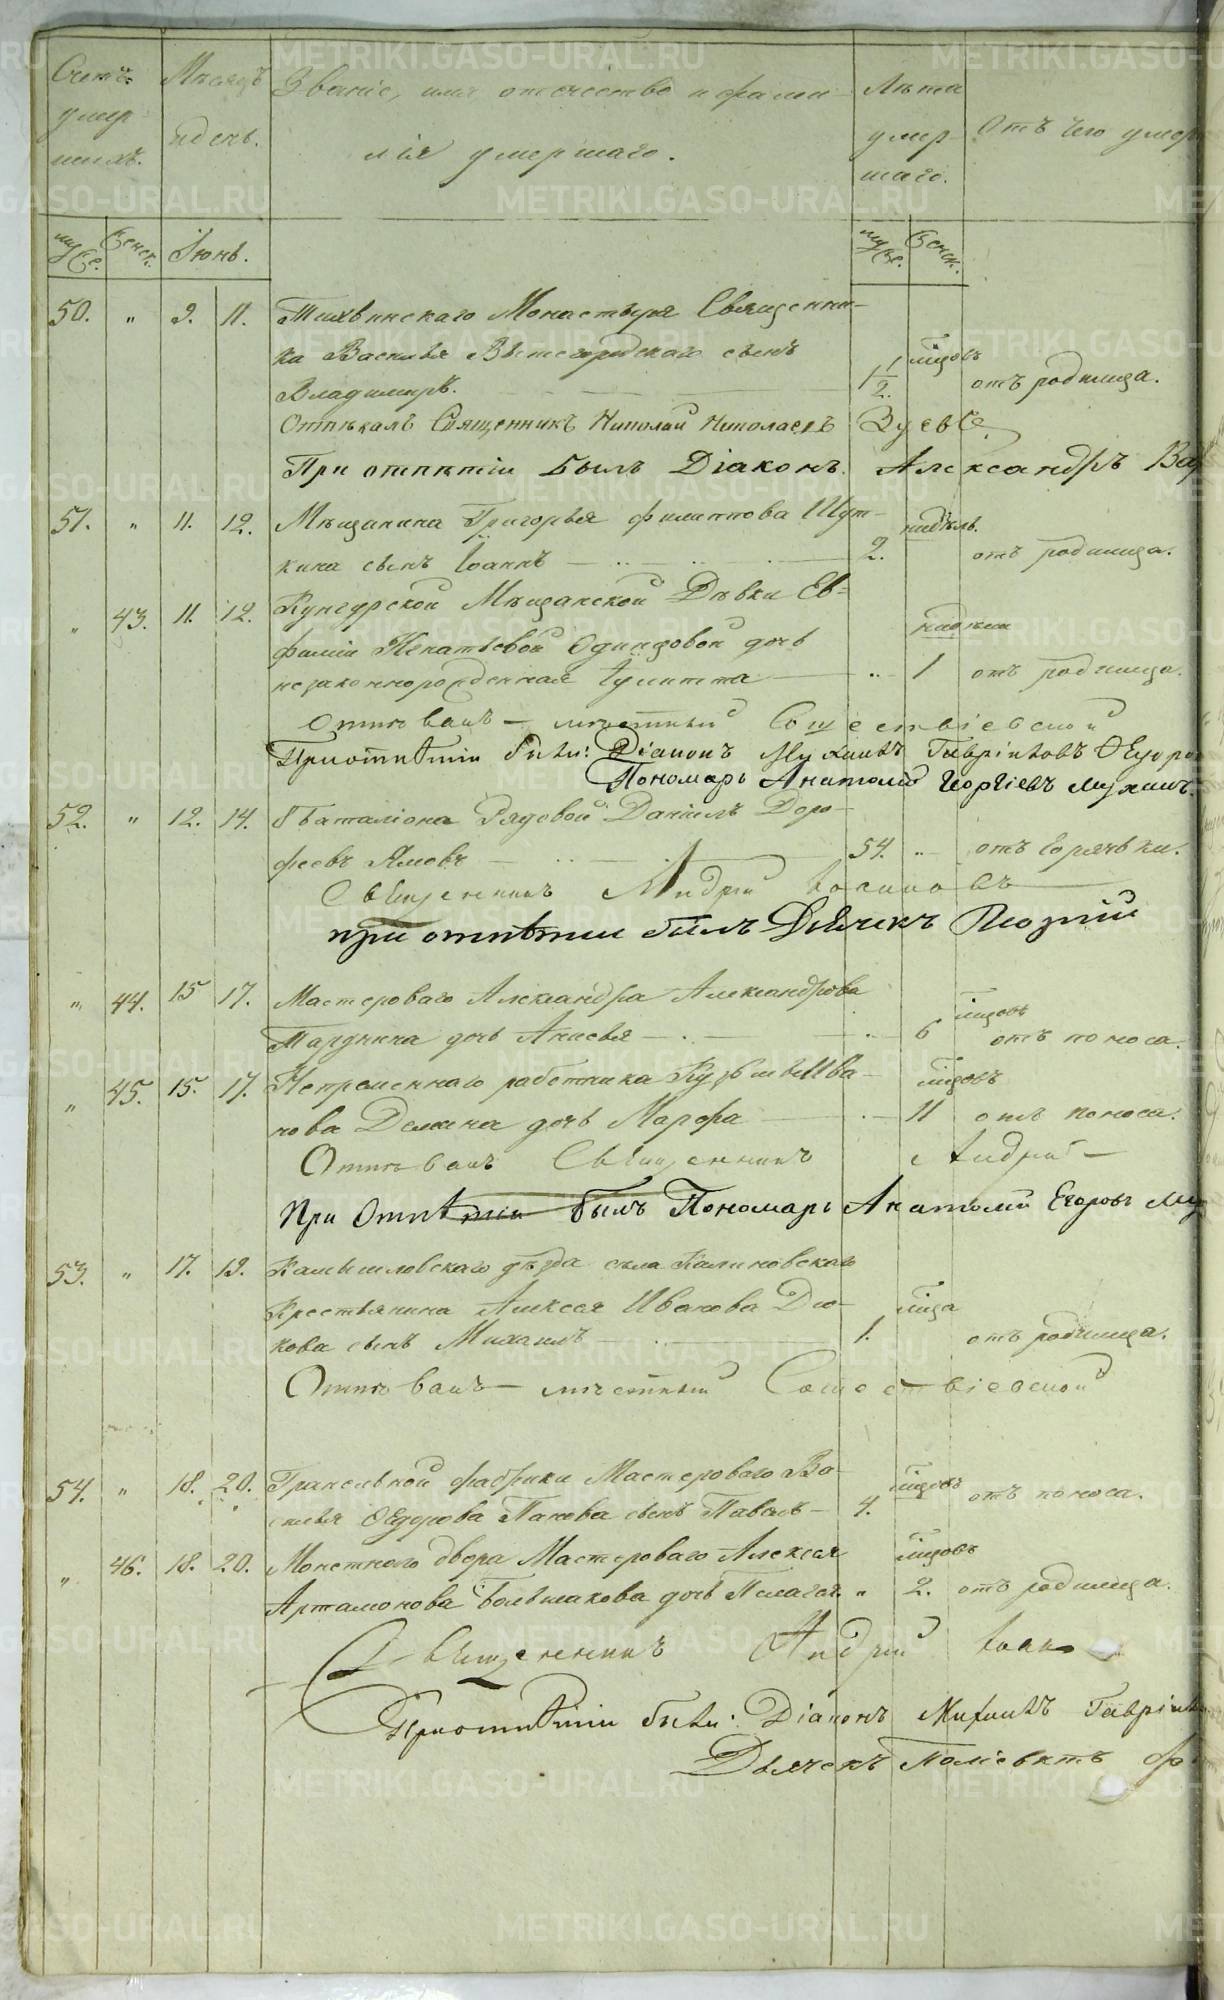 Счетъ умер шихъ.
Мѣсяцъ и день.
Званіе, имя отечество и фами
лія умершаго.
Лѣта умер шаго.
Отъ чего умеръ
муж. женск. Іюнь. муж. женск.
50. „ 9. 11. Тихвинскаго Монастыря Священни-
ка Василья Вытегорскаго сынъ мѣсцовъ
Владимиръ. 1 1/2. отъ родимца.
Отпѣвалъ Священникъ Николай Николаевъ Зуевъ
При отпѣтіи былъ Діаконъ Александръ
51. „ 11. 12. Мѣщанина Григорья Филиппова Шут- нидѣль.
кина сынъ Іоаннъ 2. отъ родимца.
„ 43. 11. 12. Кунгурской Мѣщанской Дѣвки Ев=
фиміи Игнатьевой Одинцовой дочь
незаконнорожденная Іулитта „ 1 отъ родимца.
Отпѣвалъ мѣстный
При отпѣтіи были: Діаконъ
Пономарь Анатолій Георгіевъ Мухинъ.
52. „ 12. 14. 8 Баталіона Рядовой Даніилъ Доро-
феевъ 54. „ отъ горячки.
Священникъ Андрей
при отпѣтіи былъ Дьячекъ
„ 44. 15 17. Мастероваго Александра Александрова мѣсцовъ
дочь Анисья „ 6 отъ поноса.
„ 45. 15. 17. Непременнаго работника Кузьмы Ива- мѣсцовъ
нова дочь Марфа „ 11 отъ поноса.
Отпѣвалъ Священникъ Андрей
При Отпѣтіи былъ Пономарь Анатолій Егоровъ
53. „ 17. 19. Камышловскаго уѣзда села Калиновскаго
Крестьянина Алексея Иванова Дю- мѣсца
кова сынъ Михаилъ 1. отъ родимца.
Отпѣвалъ мѣстный
54. „ 18. 20. Гранильной фабрики Мастероваго Ва- мѣсцовъ
силья Ѳедорова Панова сынъ Павелъ 4. отъ поноса.
„ 46. 18. 20. Монетнаго двора Мастероваго Алексея мѣсцовъ
Артамонова Большакова дочь Пелагея. „ 2. отъ родимца.
Священникъ Андрей
При отпѣтіи были: Діаконъ
Дьячекъ
METRIKI.GASO-URAL.RU